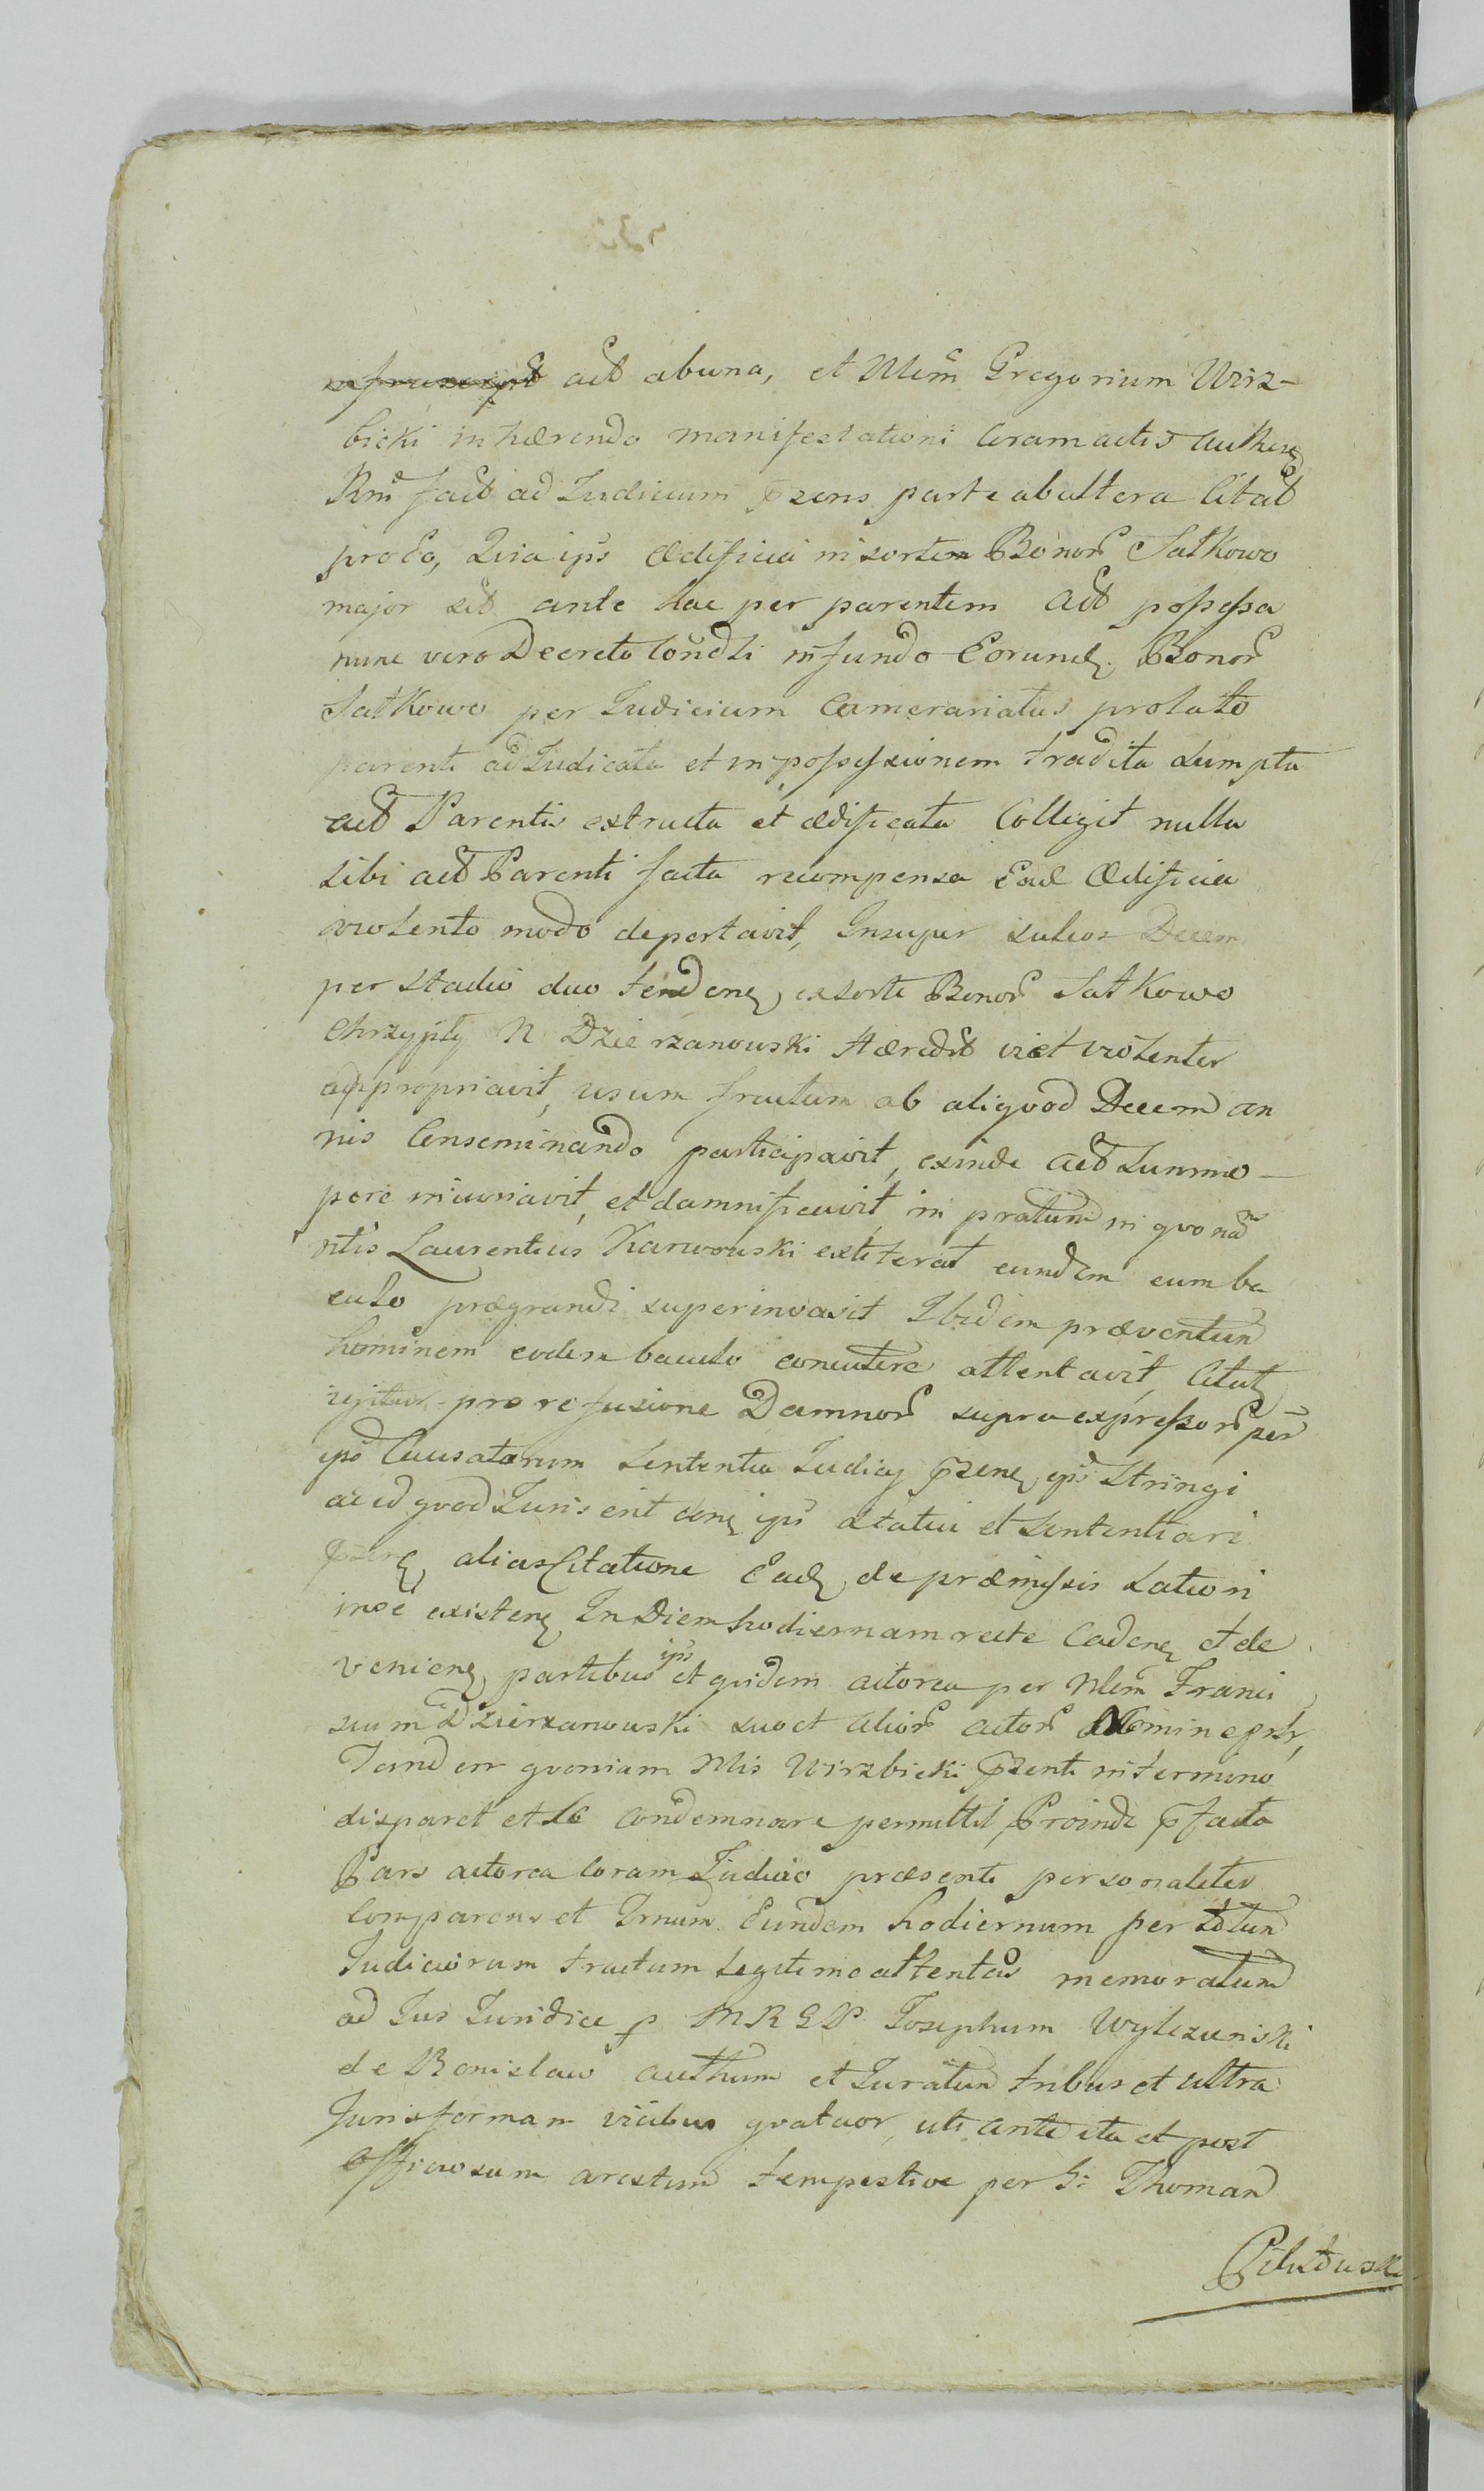 act abuna, et Mlem Gregorium Wirz-
bicki inhærendo manifestationi Coram actis Authen
Rmē fact ad Judicium pzens parte abaltera Citat
pro Eo, Quia ips Ædificia in sortem Bonor Satkowo
major sit ante hac per parentem act possessa
nunc vero Decreto Condli in fundo Eorund Bonor
Satkowo per Judicium Camerariatus prolato
parenti adJudicata et in possessionem tradita Sumptu
act Parentis extructa et ædificata Collegit nulla
sibi act Parenti facta recompensa Ead Ædificia
violento modo deportavit, Insuper sulcos Decem
per stadio duo tenden, ex sorte Bonor Satkowo
Chrzypty N Dzierzanowski Hæredit vi et violenter
appropriavit, usum fructum ab aliquod Decem an
nis Conseminando participavit, exinde act Summo-
pere iniuriavit, et damnificavit, in pratum in quo nā
ntis Laurentius Karwowski extiterat eundem cum ba
culo prægrandi superinvasit Ibidem præventum
hominem eodem baculo concutere attentavit, Citat
igitur pro refusione Damnor supra expressor per
ips Causatorum Sententia Judicy pzen ips Stringi
ac id quod Juris erit con ips statui et Sententiari
pzen, alias Citatione Ead de præmissis Latiori
inoe existen, In Diem hodiernam recte Caden et de
venien partibus ips et quidem actorea per Mlem Franci
scum Dzierzanowski suo et alior actor Nomine pstr,
Tandem quoniam Mlis Wirzbicki pzenti in termino
disparet et se Condemnare permittit, Proinde pfacta
Pars actorea Coram Judicio præsenti personaliter
Comparens et Trnum Eundem hodiernum per totum
Judiciorum tractum legitime attentans memoratum
ad Jus Juridice p MRGP Josephum Wylezunski
de Bonislaw authum et Juratum tribus et ultra
Juris formam vicibus quatuor, uti ante ita et post
Officiosum arestum tempestive per G: Thomam